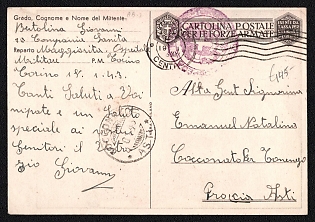 Grado, Cognome e Nome del Mittente:
Bertolina Giovanni
13 Compagnia Sanità
Reparto Maggiorità, Ospedale
Militare P.M. Torino
Torino 17. 1. 43.
Tanti Saluti a Voi
nipote e un saluto
speciale ai vostri
Genitori il Vostro
zio Giovanni
CARTOLINA POSTALE
PER LE FORZE ARMATE
Alla Gent Signorina
Emanuel Natalina
Cocconato
Provincia Asti